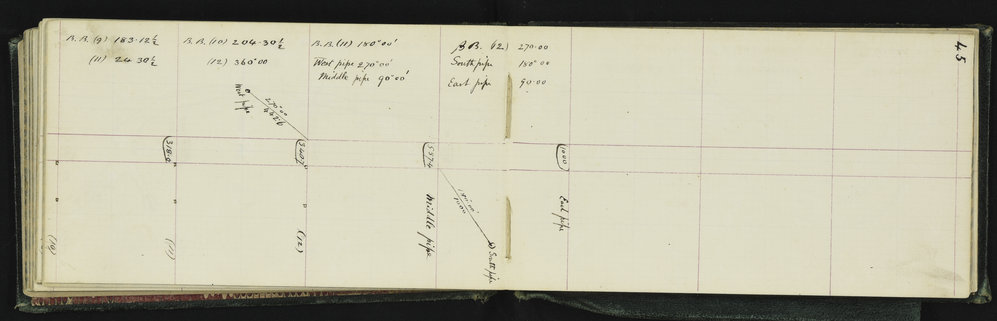 B.B. (9) 183·12½
(11) 24·30½
B.B. (10) 204·30½
(12) 360°00
B.B. (11) 180°00'
West pipe 270°00'
Middle pipe 90°00'
B.B. (12) 270·00
South pipe 180°00
East pipe 90·00
45
West pipe
270°00
3407
5374
1000
180°00'
1000
Middle pipe
South pipe
East pipe
(10)
(11)
(12)